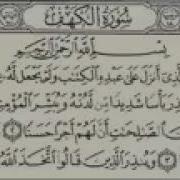 سُورَةُ الكَهْفِ
بِسْمِ اللَّهِ الرَّحْمَٰنِ الرَّحِيمِ
لَّذِي أَنزَلَ عَلَىٰ عَبْدِهِ الْكِتَٰبَ وَلَمْ يَجْعَل لَّهُ
بَأْسًا شَدِيدًا مِّن لَّدُنْهُ وَيُبَشِّرَ الْمُؤْمِ
الصَّٰلِحَٰتِ أَنَّ لَهُمْ أَجْرًا حَسَنًا ٢
٣ وَيُنذِرَ الَّذِينَ قَالُوا اتَّخَذَ اللَّهُ